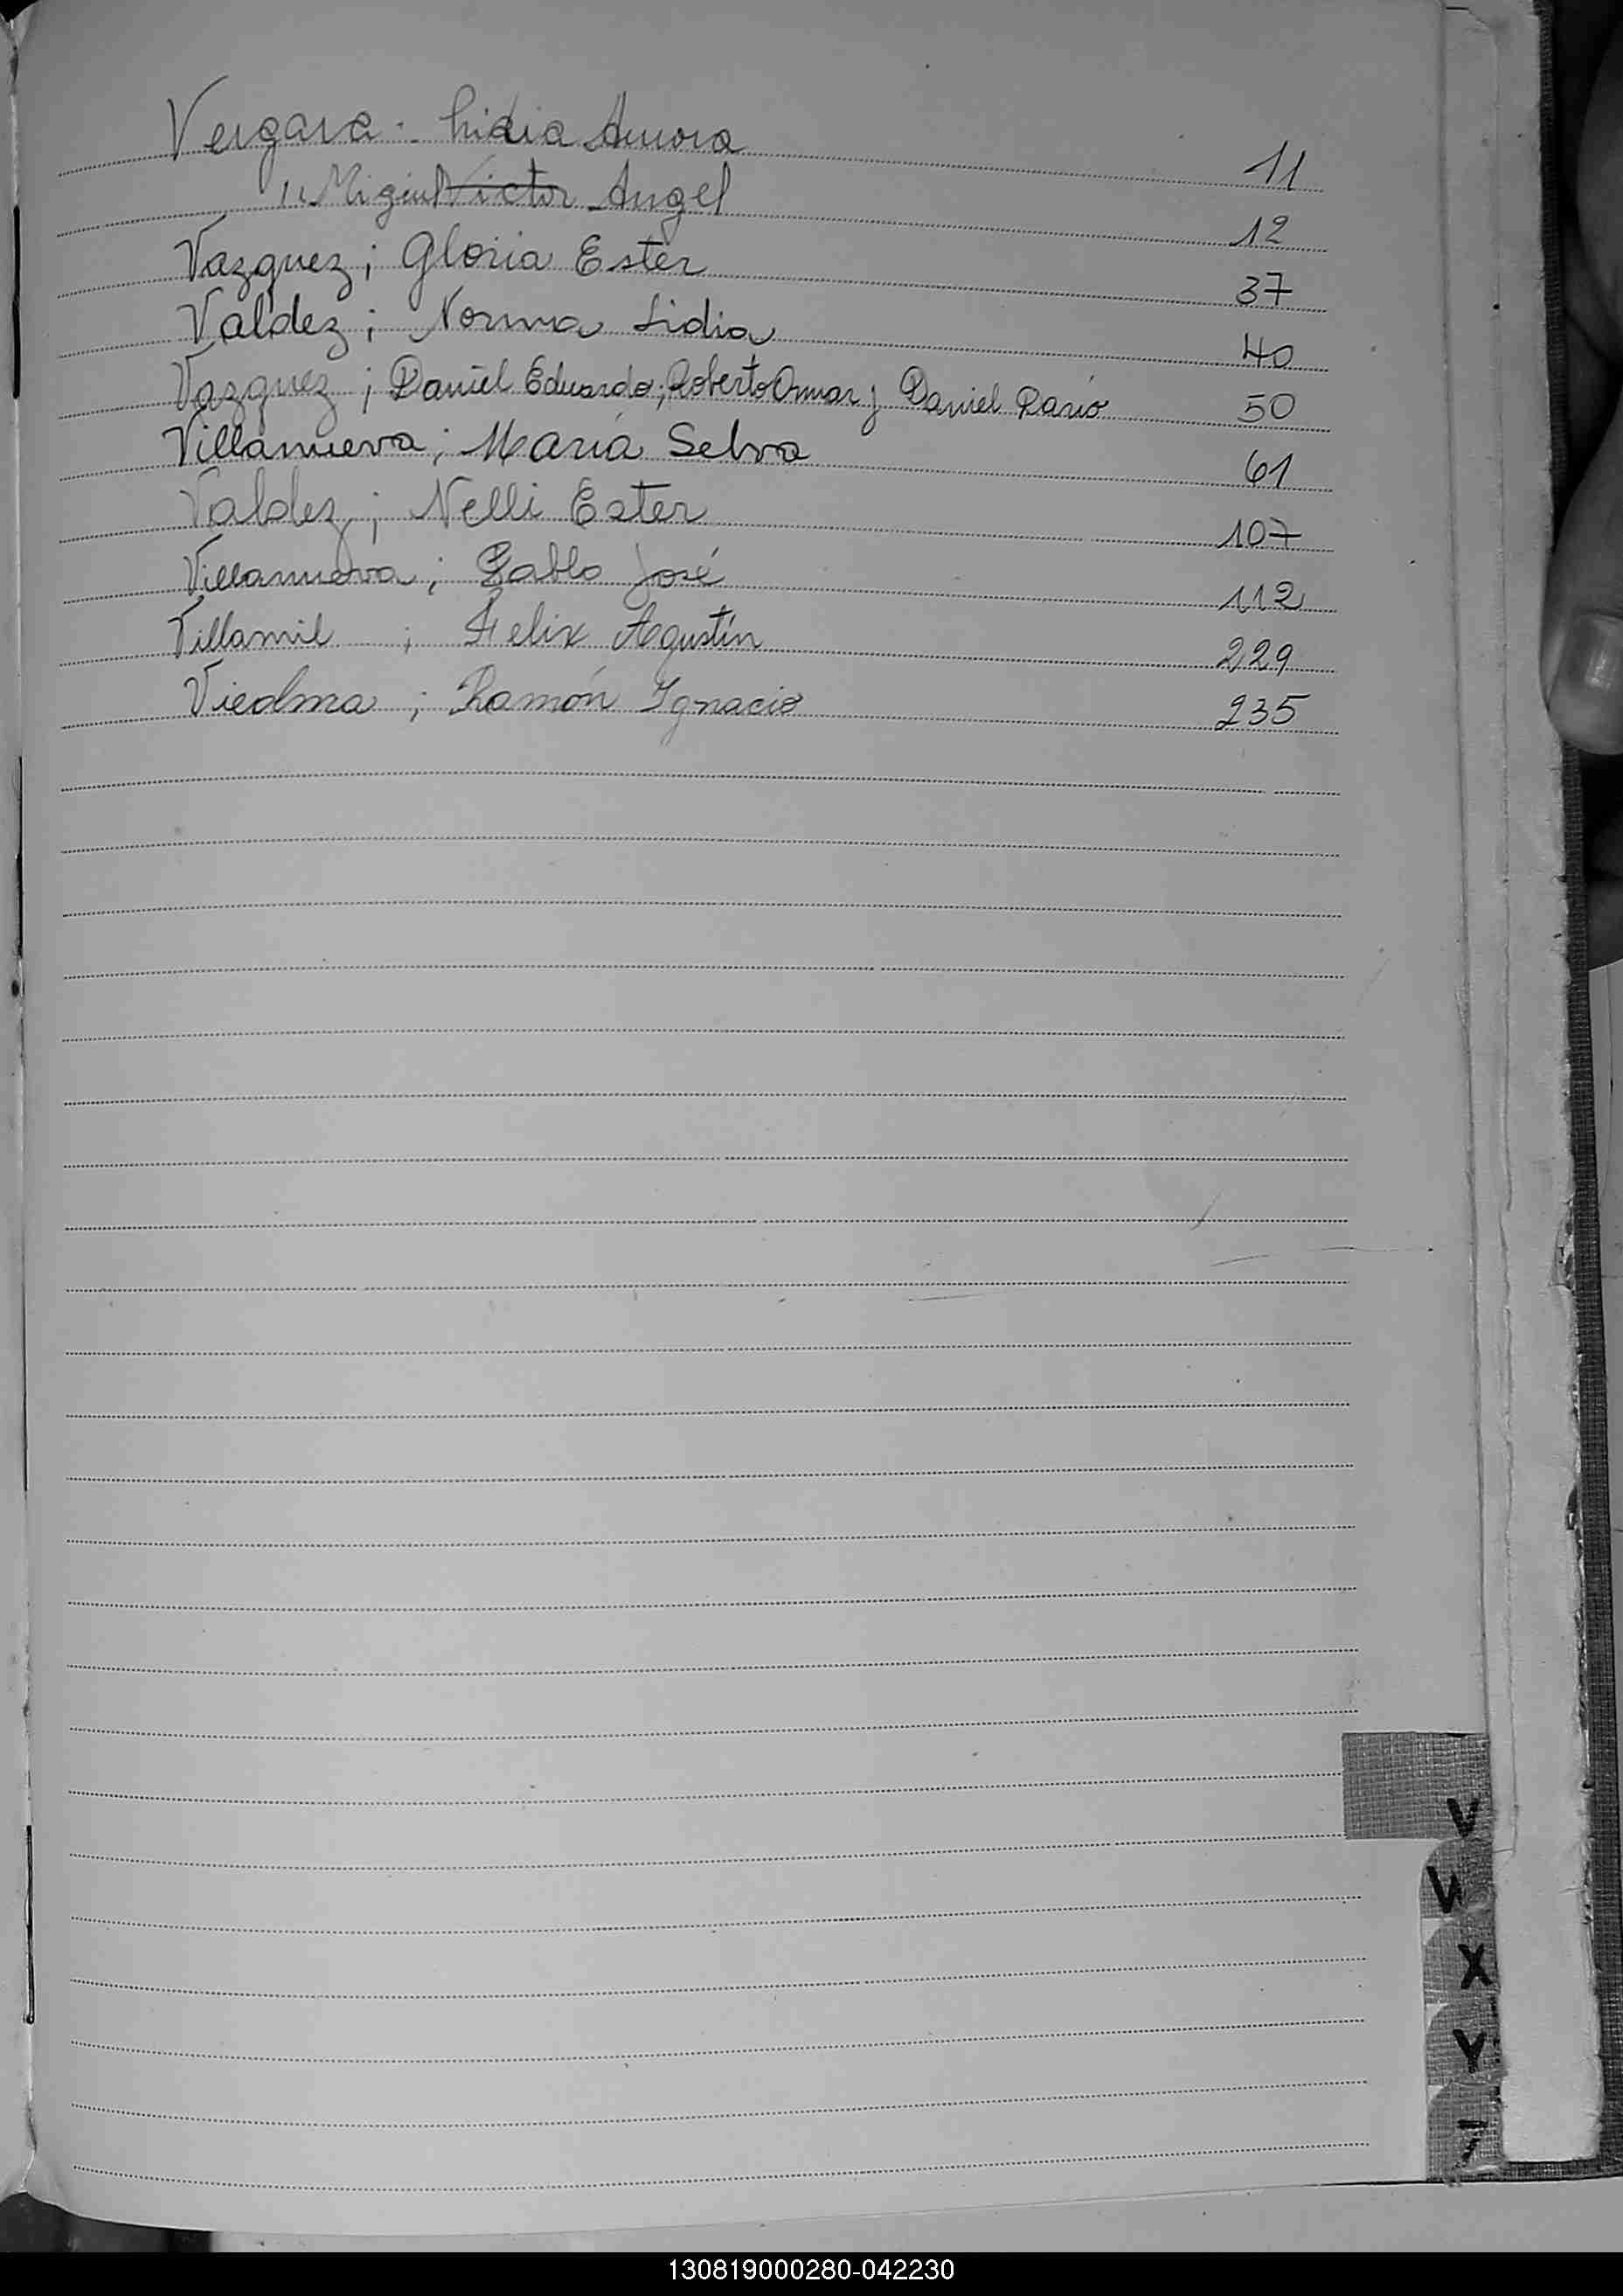 Vergara. Lidia Aurora 11
" Miguel ~~Victor~~ Angel 12
Vazquez; Gloria Ester 37
Valdez; Norma Lidia 40
Vazquez; Daniel Eduardo; Roberto Omar y Daniel Darío 50
Villanueva; María Selva 61
Valdez; Nelli Ester 107
Villanueva; Pablo José 112
Villamil ; Felix Agustín 229
Viedma ; Ramón Ignacio 235
V
W
X
Y
Z
130819000280-042230